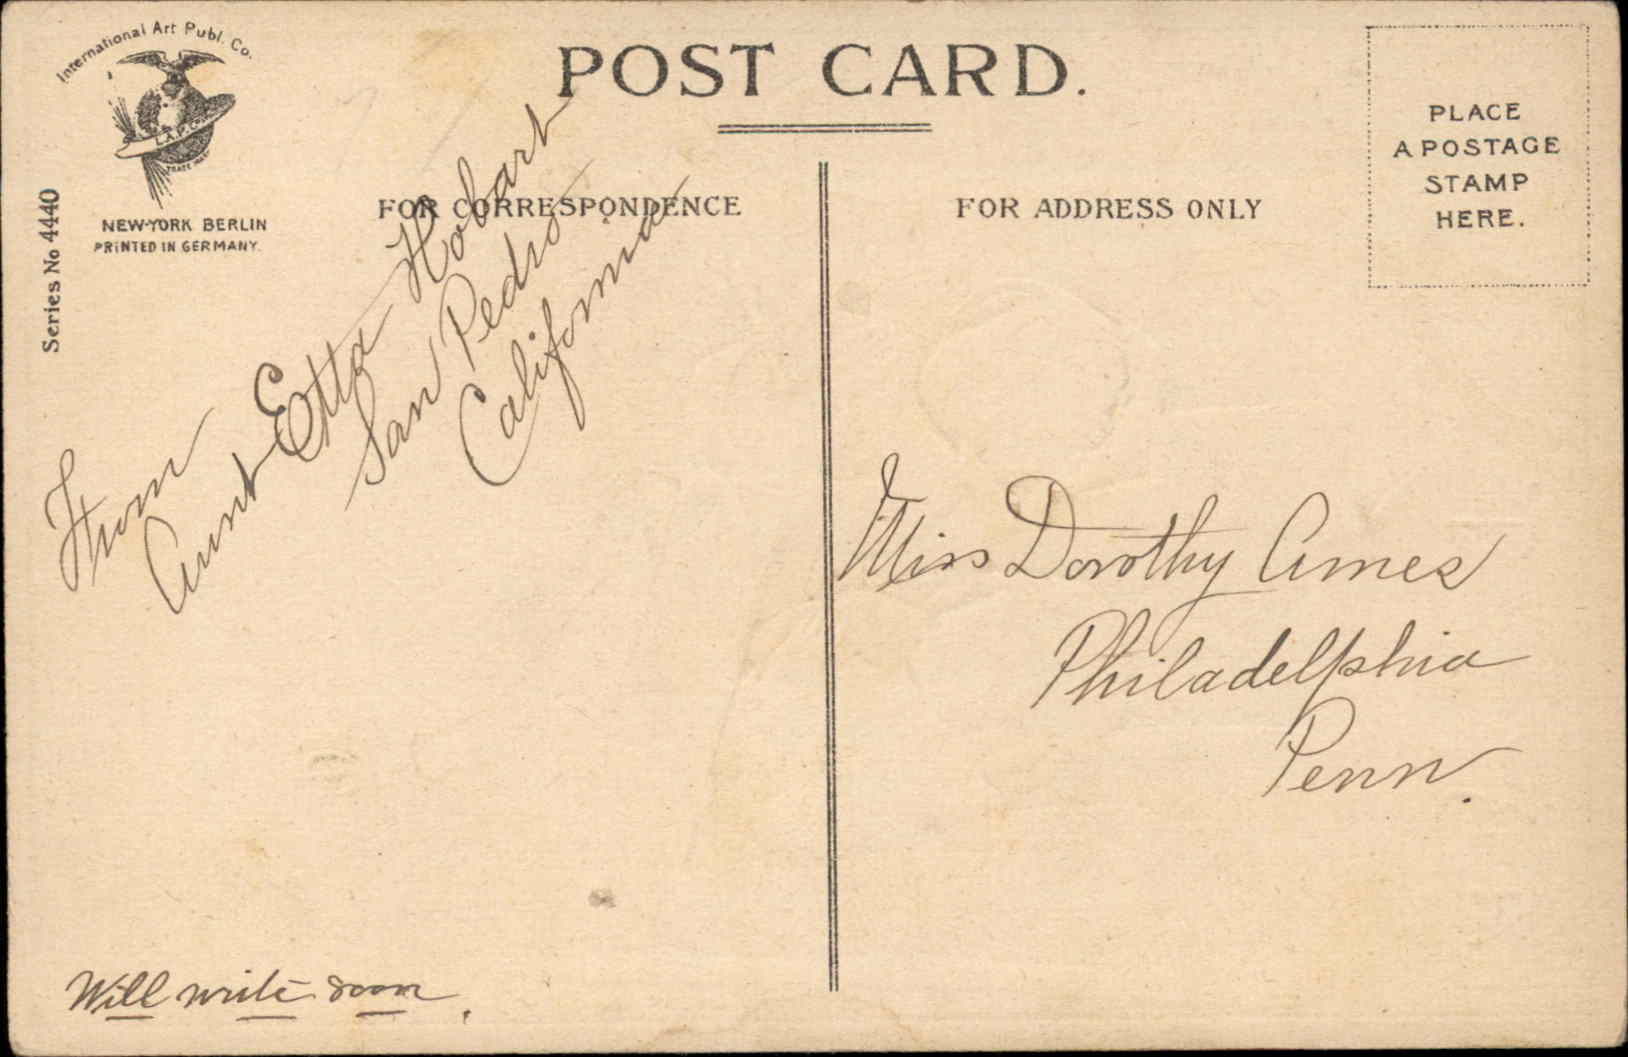 International Art Publ. Co.
I. A. P. Co.
TRADE MARK
NEW-YORK BERLIN
PRINTED IN GERMANY.
Series No 4440
POST CARD.
FOR CORRESPONDENCE
From
Aunt Etta Hobart
San Pedro
California
Will write soon.
FOR ADDRESS ONLY
PLACE
A POSTAGE
STAMP
HERE.
Miss Dorothy Ames
Philadelphia
Penn.